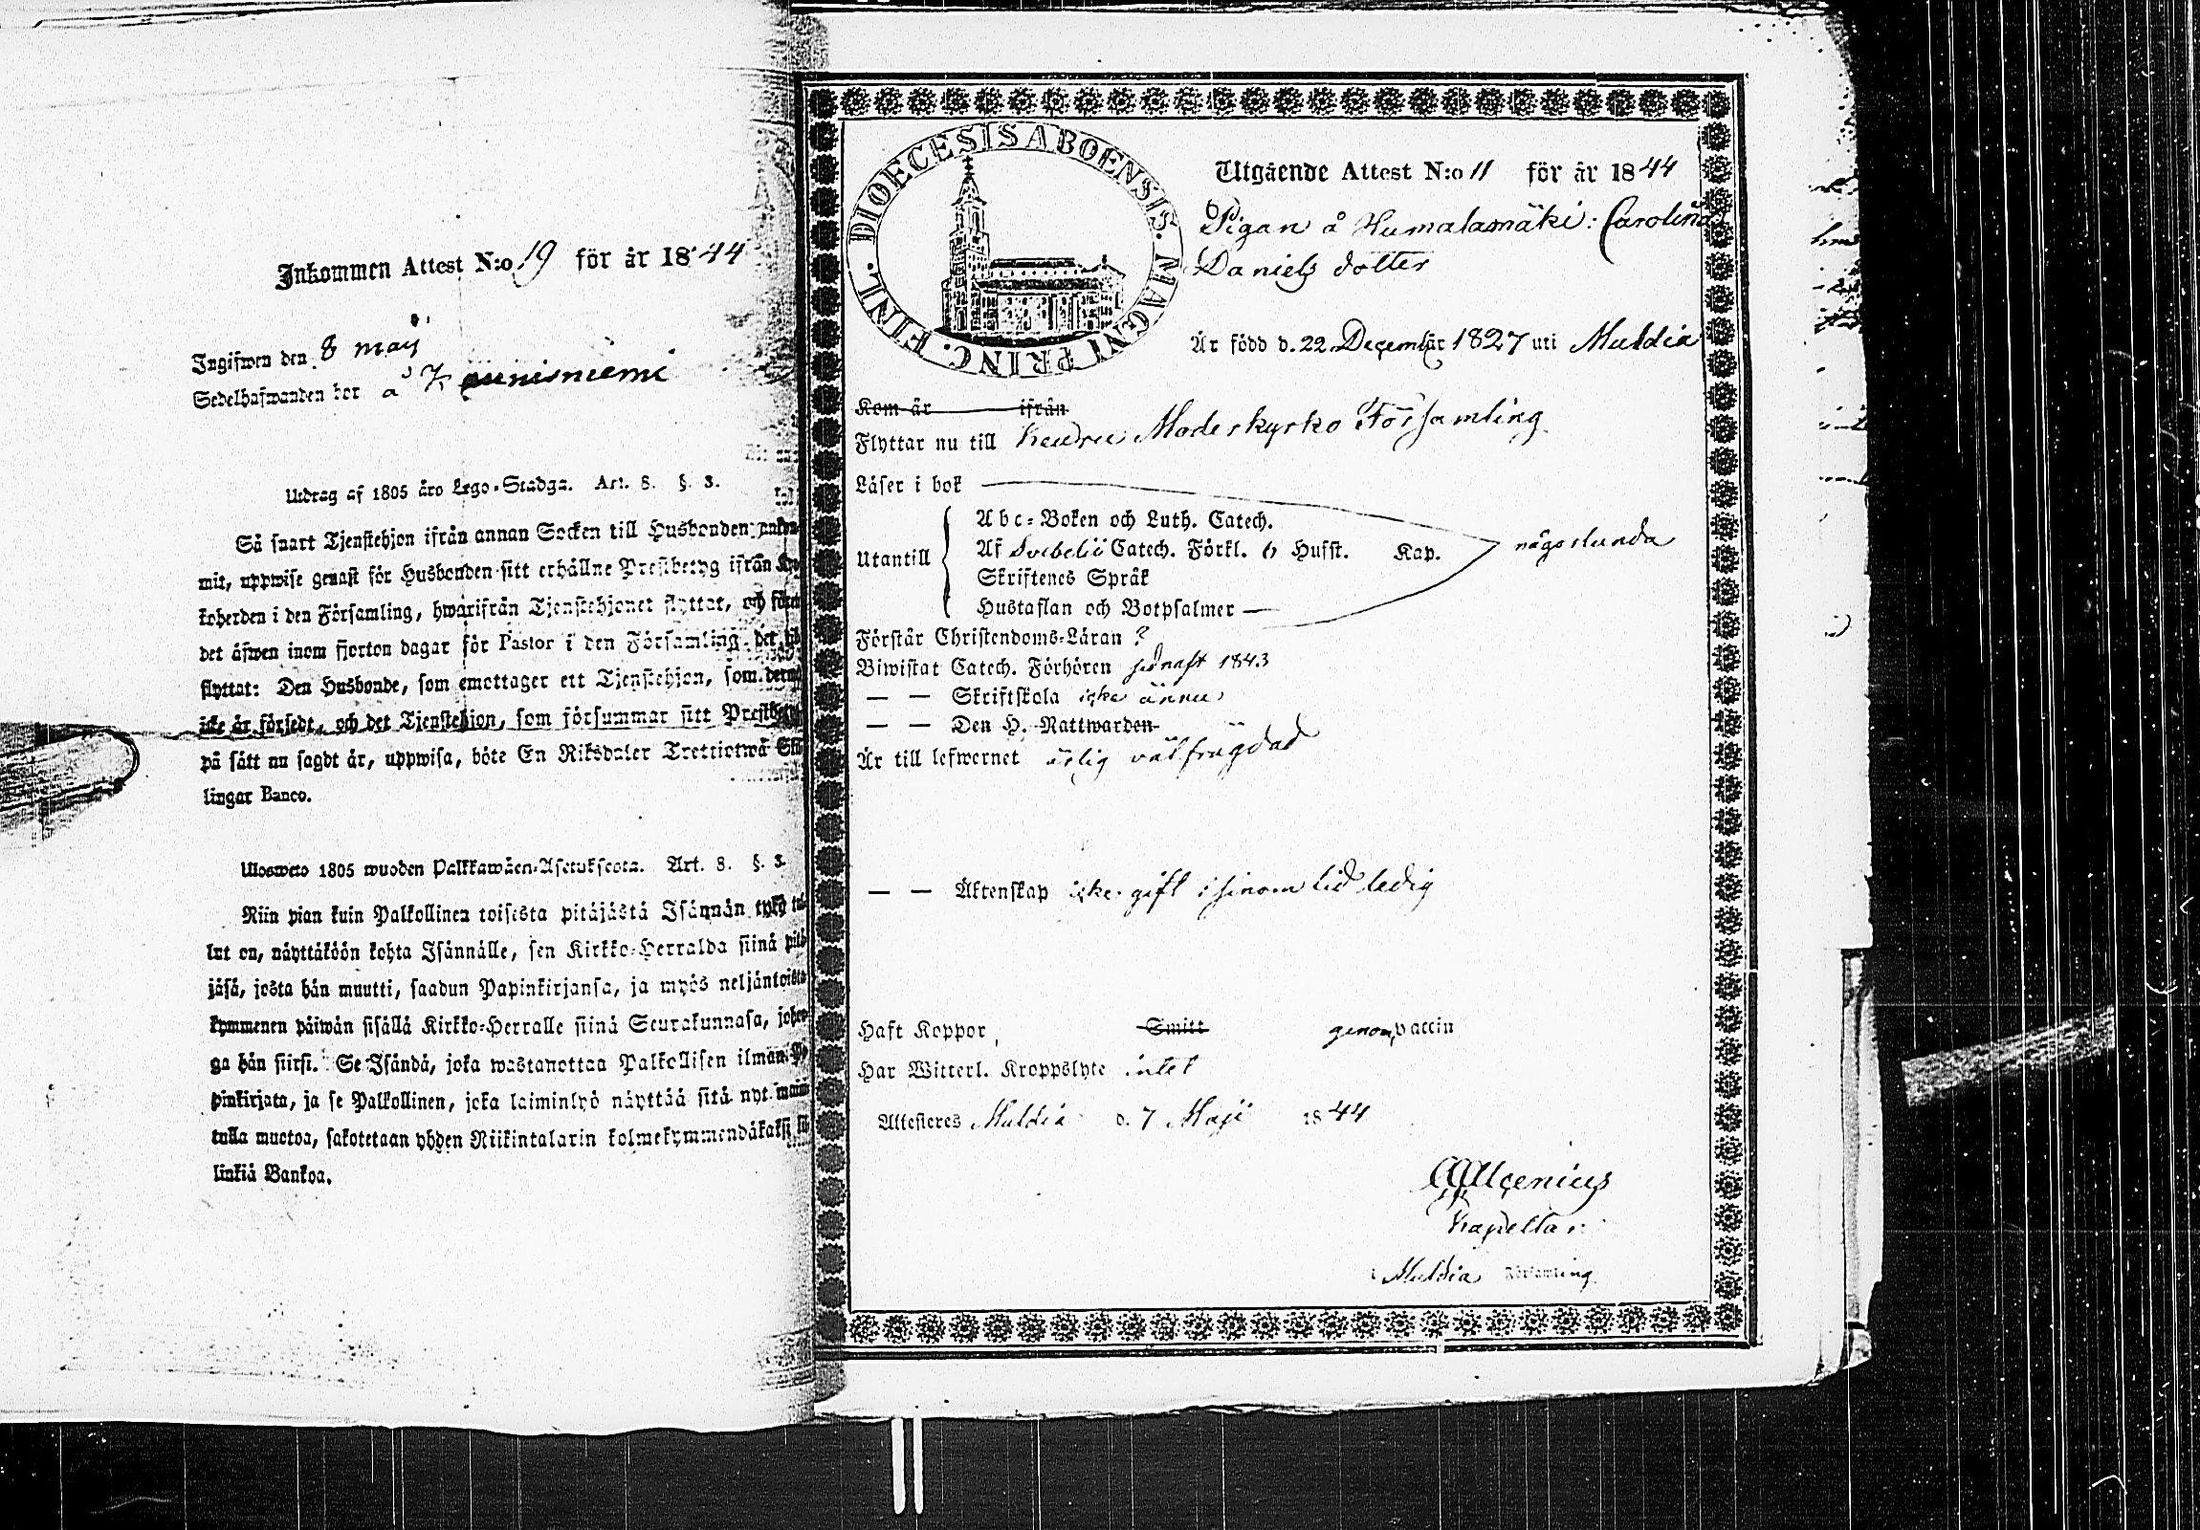 Inkommen Attest N:o 19 för år 1844
Ingifwen den 8 maij
Sedelhafwanden bor å Kaunisniemi
Utdrag af 1805 års Lego-Stadga. Art. 8. §. 3.
Så snart Tjenstehjon ifrån annan Socken till Husbonden ankom-
mit, uppwise genast för Husbonden sitt erhållne Prestbetyg ifrån Kyr-
koherden i den Församling, hwarifrån Tjenstehjonet flyttat, och
det äfwen inom fjorton dagar för Pastor i den Församling, det
flyttat: Den Husbonde, som emottager ett Tjenstehjon, som dermed
icke är försedt, och det Tjenstehjon, som försummar sitt Prestbetyg
på sätt nu sagdt är, uppwisa, böte En Riksdaler Trettiotwå Skil-
lingar Banco.
Ulosweto 1805 wuoden Palkkawäen-Asetuksesta. Art. 8. §. 3.
Niin pian kuin Palkollinen toisesta pitäjästä Isännän tykö tul-
lut on, näyttäköön kohta Isännälle, sen Kirkko-Herralda siinä pitä-
jäsä, josta hän muutti, saadun Papinkirjansa, ja myös neljäntoista-
kymmenen päiwän sisällä Kirkko-Herralle siinä Seurakunnasa, johon-
ga hän siirsi. Se Isändä, joka wastanottaa Palkollisen ilman Pa-
pinkirjata, ja se Palkollinen, joka laiminlyö näyttää sitä nyt maini-
tulla muotoa, sakotetaan yhden Riikintalarin kolmekymmendäkaksi kil-
linkiä Bankoa.
DIOECESIS ABOENSIS. MAGNI PRINC. FINL.
Utgående Attest N:o 11 för år 1844
Pigan å Humalamäki: Carolina
Daniels dotter
Är född d. 22 December 1827 uti Muldia
Kom år ifrån
Flyttar nu till Keuru Moderkyrko Församling
Läser i bok
Abc-Boken och Luth. Catech.
Utantill Af Svebelii Catech. Förkl. 6 Hufst. Kap. någorlunda
Skriftenes Språk
Hustaflan och Botpsalmer
Förstår Christendoms-Läran ?
Biwistat Catech. Förhören sednast 1843
— — Skriftskola icke ännu
— — Den H. Nattwarden
Är till lefwernet ärlig välfrägdad
— — Äktenskap icke gift i sinom tid ledig
Haft Koppor, Smitt genom vaccin
Har Witterl. Kroppslyte intet
Attesteres Muldia d. 7 Maji 1844
Kapellan
i Muldia Församling